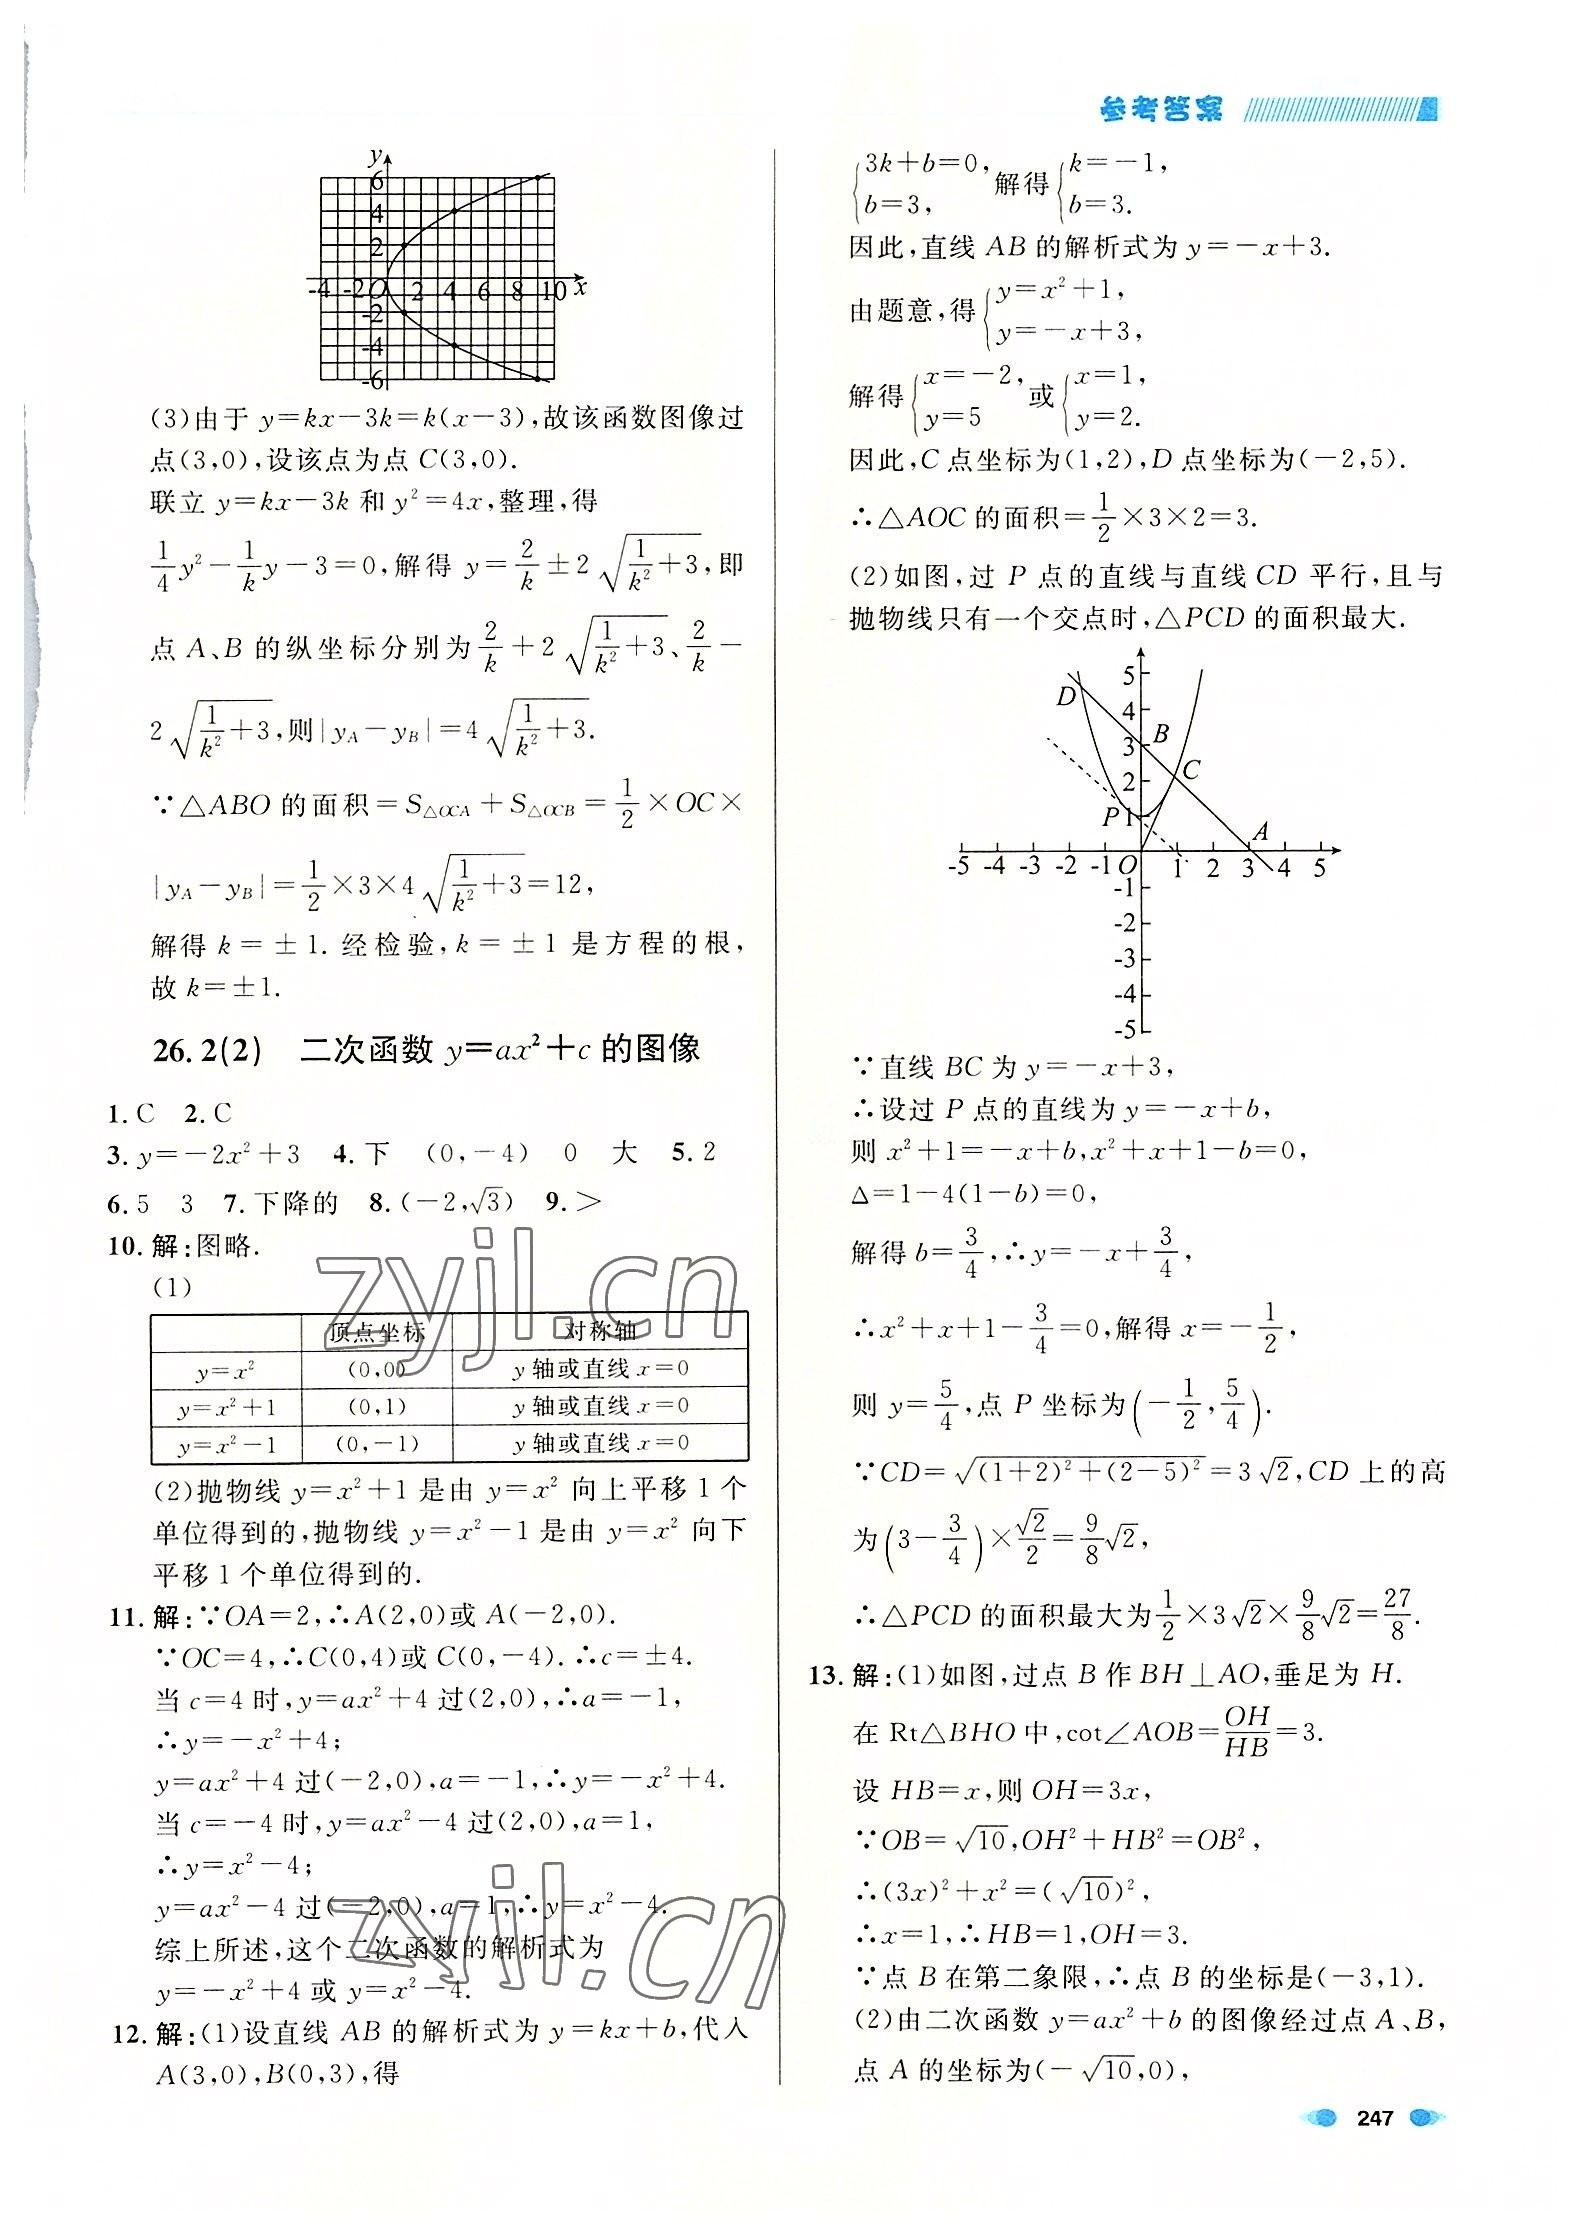 参考答案
y
6
4
2
-4 -2 O 2 4 6 8 10 x
-2
-4
-6
(3)由于 y=kx-3k=k(x-3),故该函数图像过
点(3,0),设该点为点 C(3,0).
联立 y=kx-3k 和 y²=4x,整理,得
1/4 y²-1/k y-3=0,解得 y=2/k±2√(1/k²+3),即
点 A、B 的纵坐标分别为 2/k+2√(1/k²+3)、2/k-
2√(1/k²+3),则|y_A-y_B|=4√(1/k²+3).
∵△ABO 的面积=S△OCA+S△OCB=1/2×OC×
|y_A-y_B|=1/2×3×4√(1/k²+3)=12,
解得 k=±1.经检验,k=±1 是方程的根,
故 k=±1.
26.2(2) 二次函数 y=ax²+c 的图像
1.C 2.C
3.y=-2x²+3 4.下 (0,-4) 0 大 5.2
6.5 3 7.下降的 8.(-2,√3) 9.>
10.解:图略.
(1)
顶点坐标 对称轴
y=x² (0,0) y 轴或直线 x=0
y=x²+1 (0,1) y 轴或直线 x=0
y=x²-1 (0,-1) y 轴或直线 x=0
(2)抛物线 y=x²+1 是由 y=x² 向上平移 1 个
单位得到的,抛物线 y=x²-1 是由 y=x² 向下
平移 1 个单位得到的.
11.解:∵OA=2,∴A(2,0)或 A(-2,0).
∵OC=4,∴C(0,4)或 C(0,-4).∴c=±4.
当 c=4 时,y=ax²+4 过(2,0),∴a=-1,
∴y=-x²+4;
y=ax²+4 过(-2,0),a=-1,∴y=-x²+4.
当 c=-4 时,y=ax²-4 过(2,0),a=1,
∴y=x²-4;
y=ax²-4 过(-2,0),a=1,∴y=x²-4.
综上所述,这个二次函数的解析式为
y=-x²+4 或 y=x²-4.
12.解:(1)设直线 AB 的解析式为 y=kx+b,代入
A(3,0),B(0,3),得
{3k+b=0, b=3, 解得{k=-1, b=3.
因此,直线 AB 的解析式为 y=-x+3.
由题意,得{y=x²+1, y=-x+3,
解得{x=-2, y=5 或{x=1, y=2.
因此,C 点坐标为(1,2),D 点坐标为(-2,5).
∴△AOC 的面积=1/2×3×2=3.
(2)如图,过 P 点的直线与直线 CD 平行,且与
抛物线只有一个交点时,△PCD 的面积最大.
5
D
4
3 B
2 C
P 1 A
-5 -4 -3 -2 -1 O 1 2 3 4 5
-1
-2
-3
-4
-5
∵直线 BC 为 y=-x+3,
∴设过 P 点的直线为 y=-x+b,
则 x²+1=-x+b,x²+x+1-b=0,
Δ=1-4(1-b)=0,
解得 b=3/4,∴y=-x+3/4,
∴x²+x+1-3/4=0,解得 x=-1/2,
则 y=5/4,点 P 坐标为(-1/2,5/4).
∵CD=√((1+2)²+(2-5)²)=3√2,CD 上的高
为(3-3/4)×√2/2=9/8√2,
∴△PCD 的面积最大为1/2×3√2×9/8√2=27/8.
13.解:(1)如图,过点 B 作 BH⊥AO,垂足为 H.
在 Rt△BHO 中,cot∠AOB=OH/HB=3.
设 HB=x,则 OH=3x,
∵OB=√10,OH²+HB²=OB²,
∴(3x)²+x²=(√10)²,
∴x=1,∴HB=1,OH=3.
∵点 B 在第二象限,∴点 B 的坐标是(-3,1).
(2)由二次函数 y=ax²+b 的图像经过点 A、B,
点 A 的坐标为(-√10,0),
247
zyjl.cn
zyjl.cn